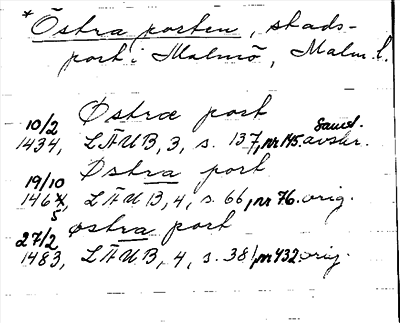 *Östra porten, stads-
port i Malmö, Malm. l.
Østræ port
10/2 1434, LÄUB, 3, s. 137, nr 145. samt. avskr.
Østra port
19/10 1465, LÄUB, 4, s. 66, nr 76. orig.
østra port
27/2 1483, LÄUB, 4, s. 381, nr 432. orig.